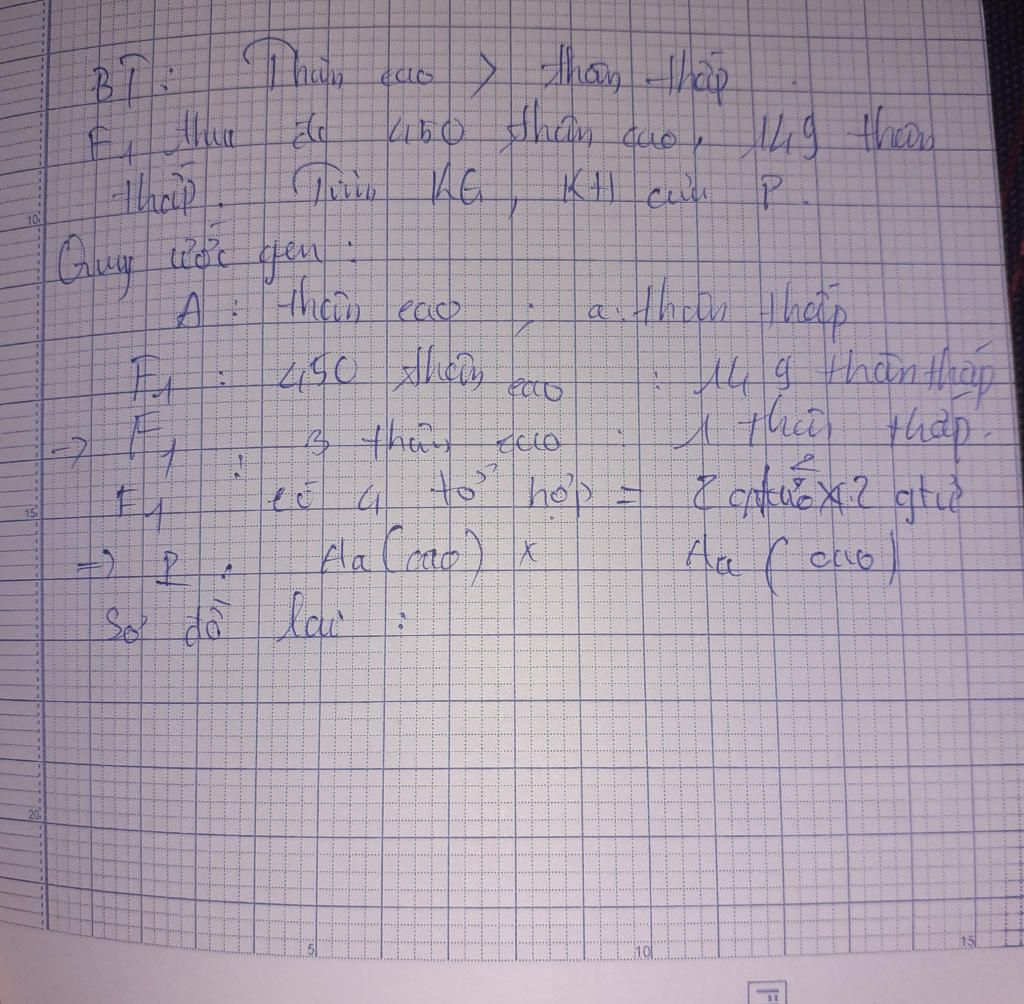 BT: Thân cao > thân thấp
F1 thu đc 450 thân cao, 149 thân
thấp. Tìm KG, KH của P.
Quy ước gen:
A: thân cao ; a: thân thấp
F1: 450 thân cao : 149 thân thấp
→ F1: 3 thân cao : 1 thân thấp.
F1 có 4 tổ hợp = 2 x 2 gtử
=> P: Aa (cao) x Aa (cao)
Sơ đồ lai:
10
15
20
5 10 15